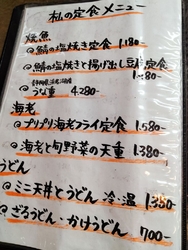 私の定食メニュー
焼魚
@鯖の塩焼き定食 1.180-
@鯖の塩焼きと揚げ出し豆腐定食
1.480-
うな重 4.280-
海老
@プリプリ海老フライ定食 1.580-
@海老と旬野菜の天重 1.380-
うどん
@ミニ天丼とうどん 冷・温 1.350
@ざるうどん・かけうどん 700-